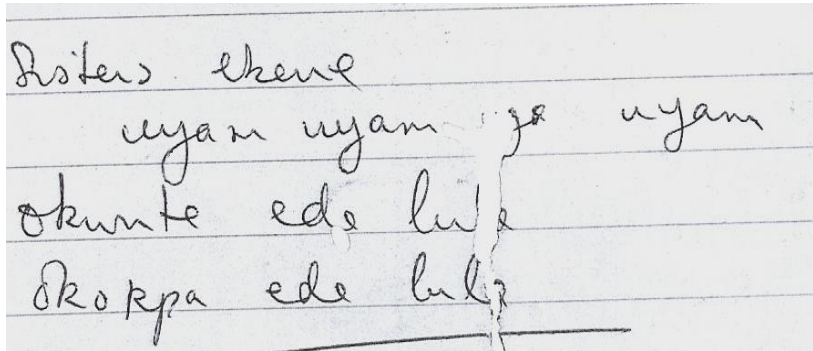 Sisters ekene
uyam uyam ya uyam
okunte ede lule
okokpa ede lule